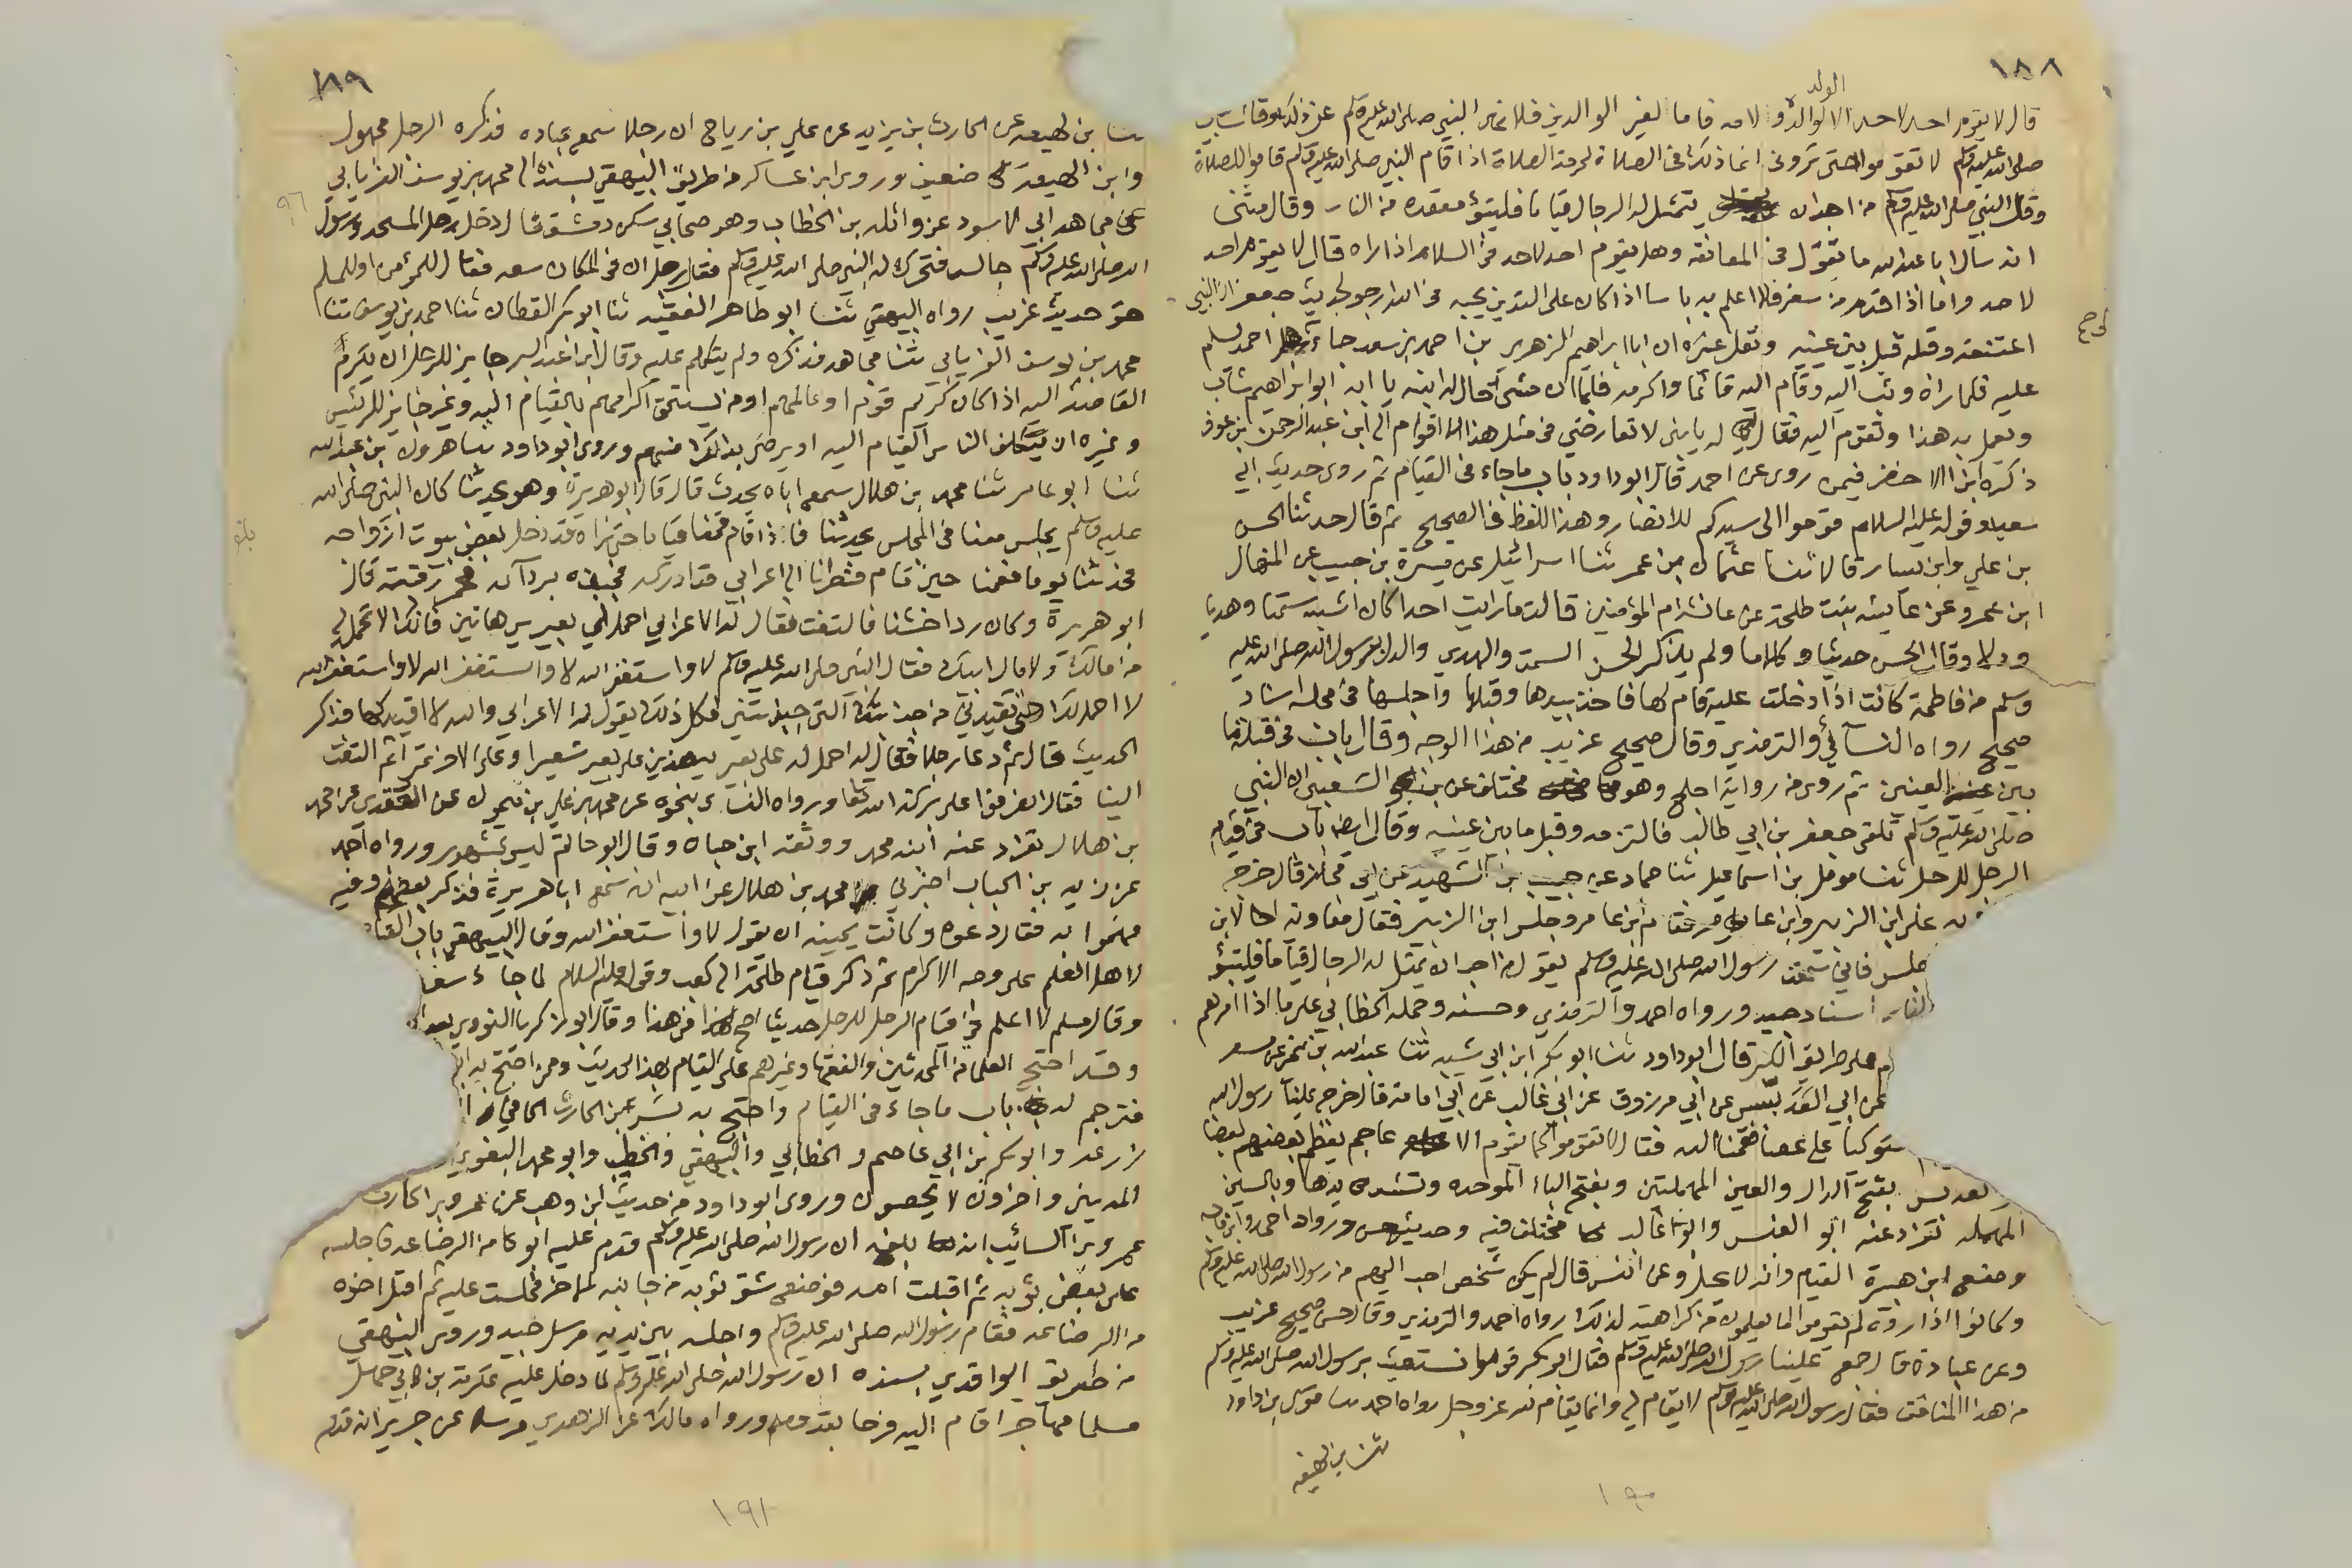 ١٨٨
الولد
قال لا يقوم احد لاحد الا لوالد و لامه فاما لغير الوالدين فلا نهى النبي صلى الله عليه وسلم عن ذلك وقال
صلى الله عليه وسلم لا تقوموا حتى تروني انما ذلك في الصلاة لحرمة الصلاة اذا قام النبي صلى الله عليه وسلم قاموا للصلاة
وقال النبي صلى الله عليه وسلم من احب ان يتمثل له الرجال قياما فليتبؤ مقعده من النار وقال مثنى
انه سال ابا عبد الله ما تقول في المعانقة وهل يقوم احد لاحد في السلام اذا راه قال لا يقوم احد
لاحد واما اذا قدم من سفر فلا اعلم به باسا اذا كان على التدين يحبه في الله ارجو لحديث جعفر ان النبي
اعتنقه وقبله بين عينيه ونقل غيره ان ابا ابراهيم الزهري بن احمد بن سعد جاء احمد يسلم
عليه فلما راه وثب اليه وقام اليه قائما واكرمه فلما ان مشى قال له ابنه يا ابه ابو ابراهيم شاب
وتعمل به هذا وتقوم اليه فقال له يا بني لا تعارضني في مثل هذا الا اقوم الى ابن عبد الرحمن بن عوف
ذكره ابن الاخضر فيمن روى عن احمد قال ابو داود باب ما جاء في القيام ثم روى حديث ابي
سعيد وقوله عليه السلام قوموا الى سيدكم للانصار وهذا اللفظ في الصحيح ثم قال حدثنا الحسن
بن علي وابن بشار قالا ثنا عثمان بن عمر ثنا اسرائيل عن ميسرة بن حبيب عن المنهال
ابن عمرو عن عايشه بنت طلحة عن عائشة ام المؤمنين قالت ما رايت احدا كان اشبه سمتا وهديا
ودلا وقال الحسن حديثا وكلاما ولم يذكر الحسن السمت والهدي والدل برسول الله صلى الله عليه
وسلم من فاطمة كانت اذا دخلت عليه قام لها فاخذ بيدها وقبلها واجلسها في مجلسه اسناد
صحيح رواه النسائي والترمذي وقال صحيح غريب من هذا الوجه وقال باب في قبلة ما
بين العينين ثم روى من رواية اجلح وهو مختلف عن الشعبي ان النبي
صلى الله عليه وسلم تلقى جعفر بن ابي طالب فالتزمه وقبل ما بين عينيه وقال ايضا باب في قيام
الرجل للرجل ثنا موسى بن اسماعيل ثنا حماد عن حبيب بن الشهيد عن ابي مجلز قال خرج
على ابن الزبير وابن عامر فقام ابن عامر وجلس ابن الزبير فقال معاوية لابن
فاني سمعت رسول الله صلى الله عليه وسلم يقول من احب ان يمثل له الرجال قياما فليتبؤ
اسناد جيد ورواه احمد والترمذي وحسنه وحمله الخطابي على ما اذا امرهم
على طريق الكبر قال ابو داود ثنا ابو بكر ابن ابي شيبه ثنا عبد الله بن نمير عن مسعر
عن ابي العدبس عن ابي مرزوق عن ابي غالب عن ابي امامة قال خرج علينا رسول الله
متوكيا على عصا فقمنا اليه فقال لا تقوموا كما تقوم الاعاجم يعظم بعضهم بعضا
بفتح الدال والعين المهملتين وبفتح الباء الموحده وتشديدها وبالسين
المهمله تفرد عنه ابو العنبس وابو غالب مختلف فيه وحديثه حسن ورواه احمد وابن ماجه
ومنع ابن هبيرة القيام وانه لا يحل وعن انس قال لم يكن شخص احب اليهم من رسول الله صلى الله عليه وسلم
وكانوا اذا راوه لم يقوموا لما يعلمون من كراهيته لذلك رواه احمد والترمذي وقال حسن صحيح غريب
وعن عبادة قال خرج علينا رسول الله صلى الله عليه وسلم فقال ابو بكر قوموا نستغيث برسول الله صلى الله عليه وسلم
من هذا المنافق فقال رسول الله صلى الله عليه وسلم لا يقام لي وانما يقام لله عز وجل رواه احمد ثنا موسى بن داود
ثنا ابن لهيعه
١٩٠
١٨٩
ثنا ابن لهيعه عن الحارث بن يزيد عن علي بن رباح ان رجلا سمع عباده فذكره الرجل مجهول
وابن لهيعة ضعيف وروى ابن عساكر من طريق البيهقي بسنده الى محمد بن يوسف الفريابي
عن مجاهد ابي الاسود عن واثله بن الخطاب وهو صحابي سكن دمشق قال دخل رجل المسجد ورسول
الله صلى الله عليه وسلم جالس فتحرك له النبي صلى الله عليه وسلم فقال رجل ان في المكان سعه فقال للمؤمن او للمسلم
حق حديث غريب رواه البيهقي ثنا ابو طاهر الفقيه ثنا ابو بكر القطان ثنا احمد بن يوسف ثنا
محمد بن يوسف الفريابي ثنا مجاهد فذكره ولم يتكلم عليه وقال ابن عبد البر جايز للرجل ان يكرم
القاصد اليه اذا كان كريم قوم او عالمهم او من يستحق اكرامهم بالقيام اليه وغير جايز للرئيس
وغيره ان يكلف الناس القيام اليه او يرضى بذلك منهم وروى ابو داود ثنا هرون بن عبد الله
ثنا ابو عامر ثنا محمد بن هلال سمع اباه يحدث قال قال ابو هريرة وهو يحدثنا كان النبي صلى الله
عليه وسلم يجلس معنا في المجلس يحدثنا فاذا قام قمنا قياما حتى نراه قد دخل بعض بيوت ازواجه
فحدثنا يوما فقمنا حين قام فنظرنا الى اعرابي قد ادركه فجبذه بردائه فحمر رقبته قال
ابو هريرة وكان ردا خشنا فالتفت فقال له الاعرابي احمل لي بعيري هاتين فانك لا تحمل لي
من مالك ولا مال ابيك فقال النبي صلى الله عليه وسلم لا واستغفر الله لا واستغفر الله لا واستغفر الله
لا احمل لك حتى تقيدني من جبذتك التي جبذتني فكل ذلك يقول له الاعرابي والله لا اقيدكها فذكر
الحديث قال ثم دعا رجلا فقال له احمل له على بعيريه هذين على بعير شعيرا وعلى الاخر تمرا ثم التفت
الينا فقال انصرفوا على بركة الله تعالى ورواه النسائي بنحوه عن محمد بن علي بن ميمون عن القعنبي عن محمد
بن هلال تفرد عنه ابنه محمد ووثقه ابن حبان وقال ابو حاتم ليس بمشهور ورواه احمد
عن زيد بن الحباب اخبرني محمد بن هلال عن ابيه انه سمع ابا هريرة فذكر بعضه وفيه
فهموا به فقال دعوه وكانت يمينه ان يقول لا واستغفر الله وقال البيهقي باب القيام
لاهل العلم على وجه الاكرام ثم ذكر قيام طلحة الى كعب وقوله عليه السلام لما جاء سعد
وقال مسلم لا اعلم في قيام الرجل للرجل حديثا اصح من هذا وقال ابو زكريا النووي
وقد احتج العلماء من المحدثين والفقهاء وغيرهم على القيام بهذا الحديث وممن احتج به ابو
فترجم له باب ما جاء في القيام واحتج به بشر بن الحارث الحافي
زرعه وابو بكر بن ابي عاصم والخطابي والبيهقي والخطيب وابو محمد البغوي
المديني واخرون لا يحصون وروى ابو داود من حديث ابن وهب عن عمرو بن الحارث
عمرو بن السائب انه بلغه ان رسول الله صلى الله عليه وسلم قدم عليه ابوه من الرضاعه فاجلسه
على بعض ثوبه ثم اقبلت امه فوضع شق ثوبه من جانبه الاخر فجلست عليه ثم اقبل اخوه
من الرضاعه فقام رسول الله صلى الله عليه وسلم واجلسه بين يديه مرسل جيد وروى البيهقي
من طريق الواقدي بسنده ان رسول الله صلى الله عليه وسلم لما دخل عليه عكرمة بن ابي جهل
مسلما مهاجرا قام اليه فرحا بقدومه ورواه مالك عن الزهري مرسلا عن جرير انه قدم
١٩١